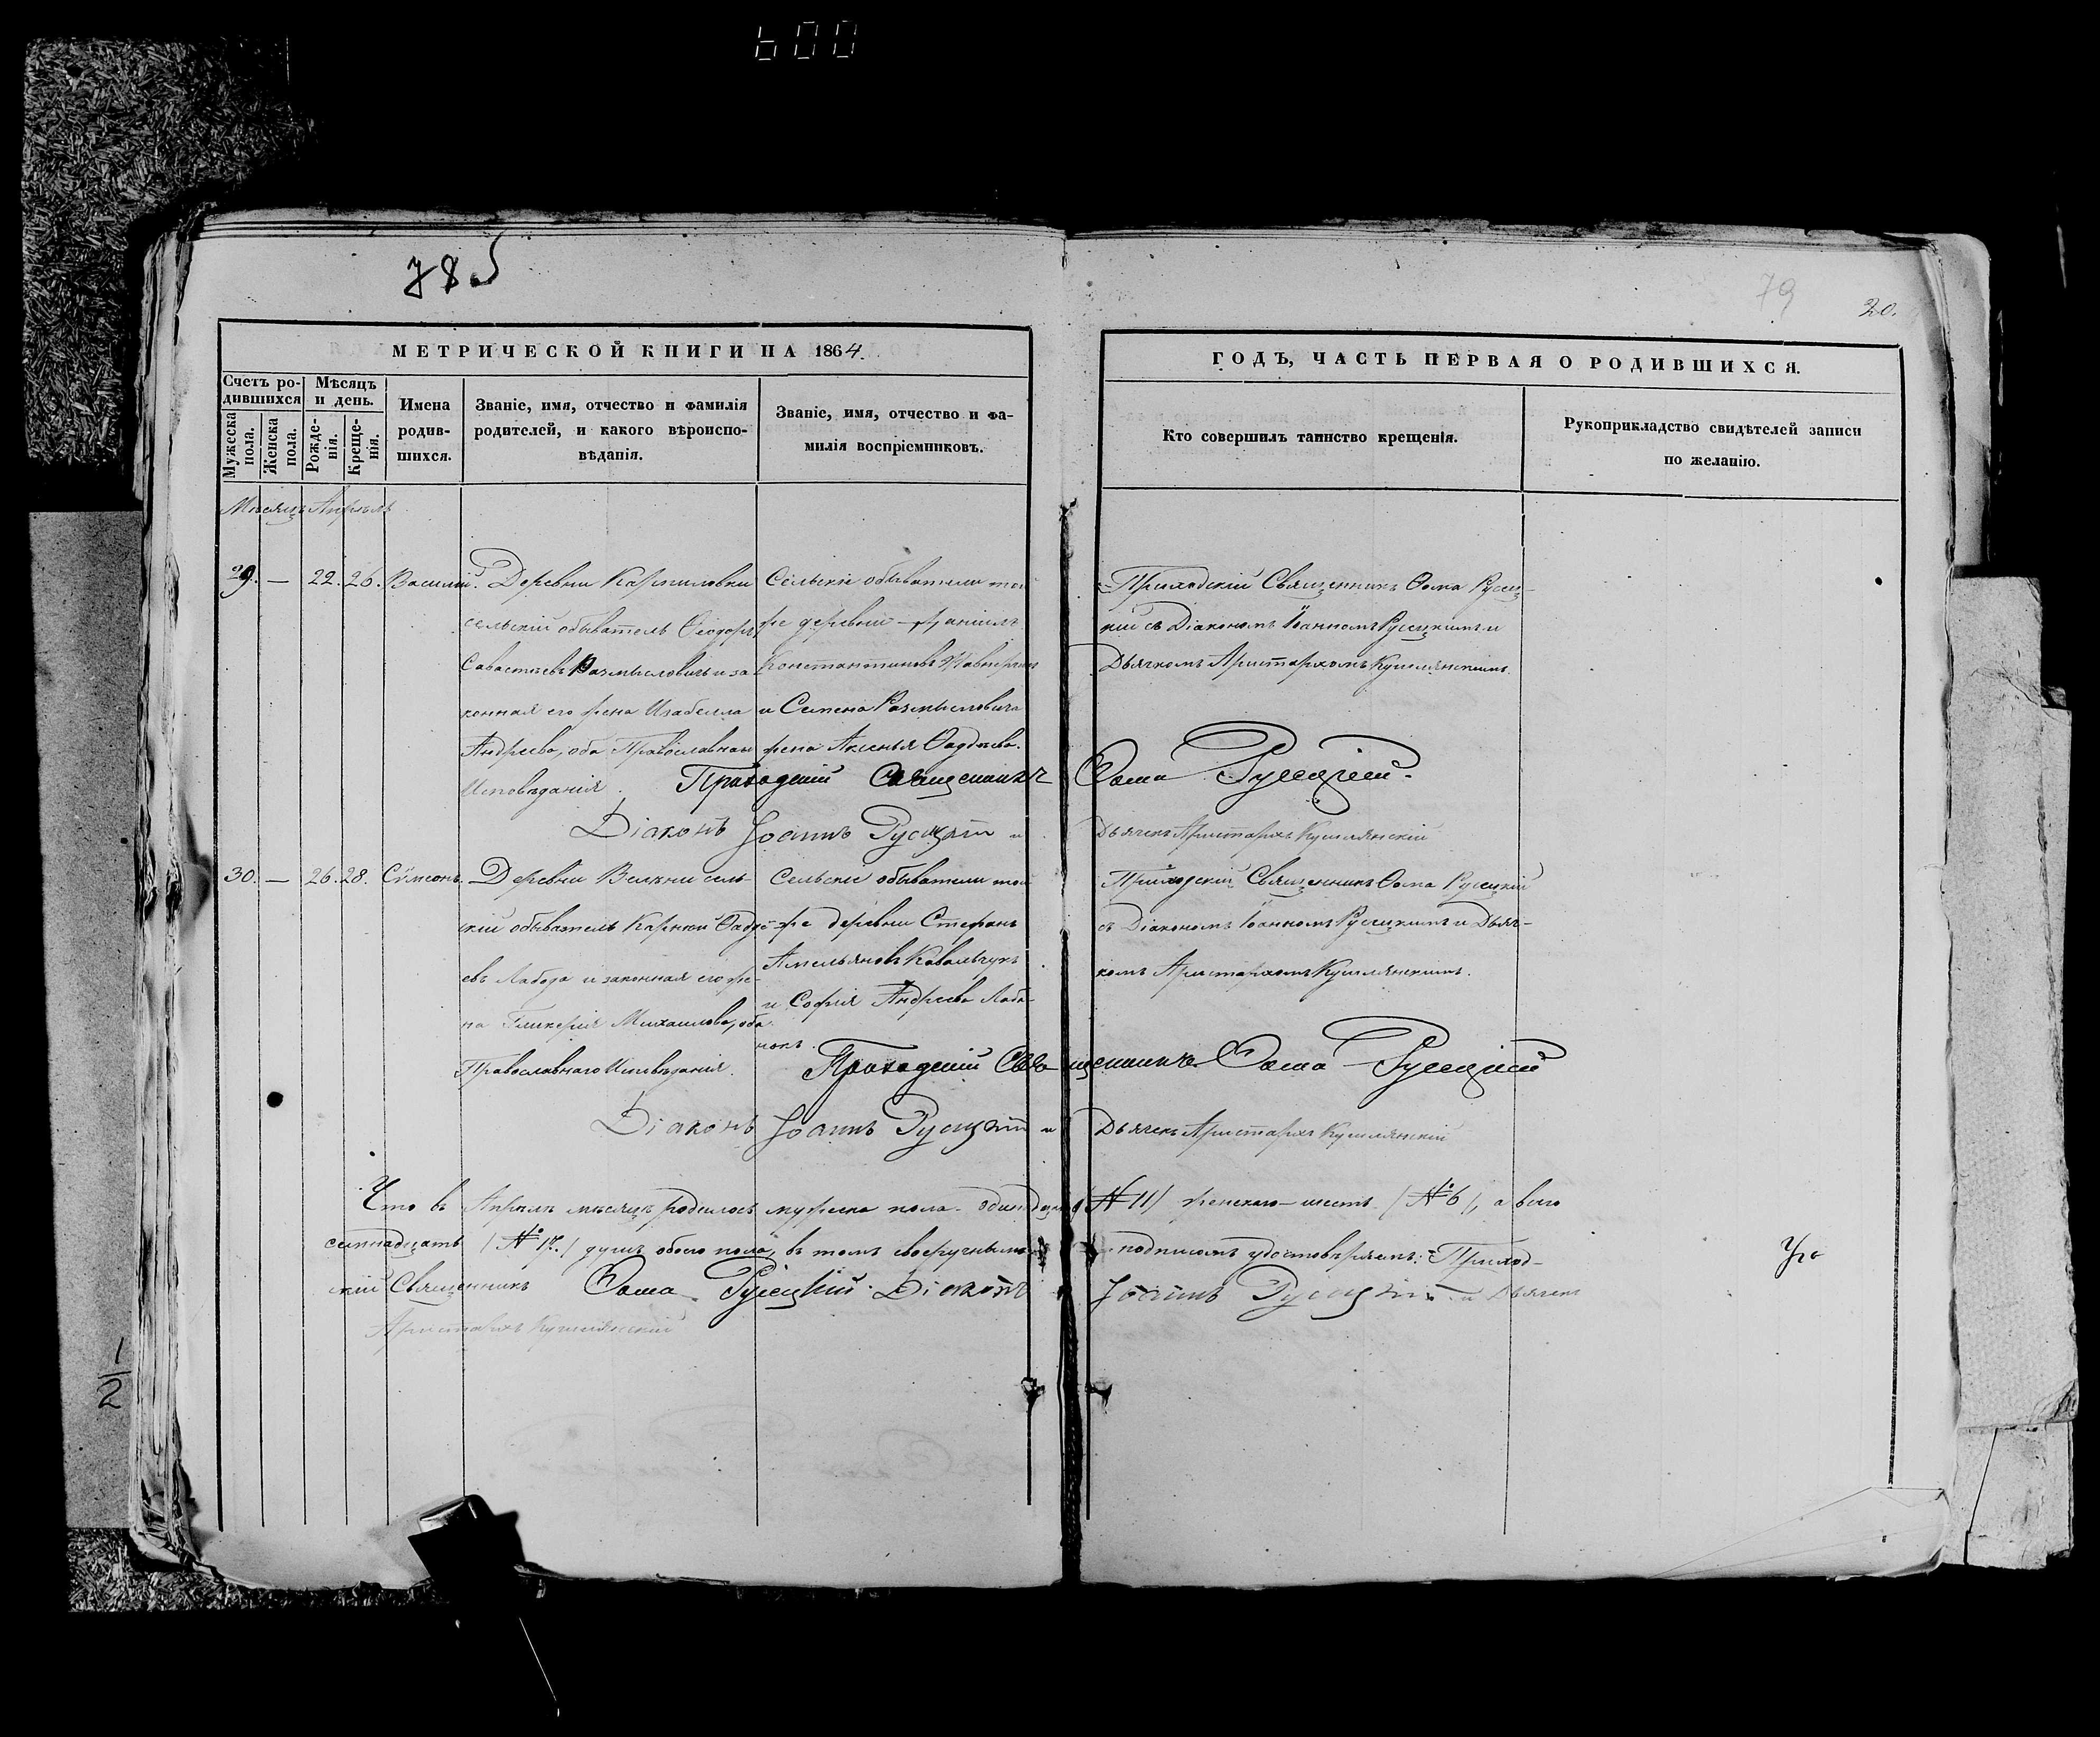 600
785
79
20.
МЕТРИЧЕСКОЙ КНИГИ НА 1864.
ГОДЪ, ЧАСТЬ ПЕРВАЯ О РОДИВШИХСЯ.
Счетъ ро-
дившихся
Мужеска
пола.
Женска
пола.
Мѣсяцъ
и день.
Рожде-
нія.
Креще-
нія.
Имена
родив-
шихся.
Званіе, имя, отчество и фамилія
родителей, и какого вѣроиспо-
вѣданія.
Званіе, имя, отчество и фа-
милія воспріемниковъ.
Кто совершилъ таинство крещенія.
Рукоприкладство свидѣтелей записи
по желанію.
Мѣсяцъ Апрѣль
29. — 22. 26. Василій.
Деревни Кармиловки
сельскій обыватель Ѳеодоръ
Савастѣевъ Размысловичъ и за
конная его жена Изабелла
Андреева, оба Православнаго
Исповѣданія.
Сельскіе обыватели той
же деревни Даніилъ
Константиновъ
и Семена Размысловича
жена Аксенья Ѳадѣева.
Приходскій Священникъ Ѳома Русец-
кій съ Діакономъ Іоанномъ Русецкимъ и
Дьячкомъ Аристархомъ Кушлянскимъ.
Приходскій Священникъ Ѳома Русецкій.
Діаконъ Іоаннъ Русецкій и Дьячекъ Аристархъ Кушлянскій
30. — 26. 28. Сѵмеонъ.
Деревни Велкни сель-
скій обыватель Карней Ѳадѣ-
евъ Лабода и законная его же-
на Гликерія Михаилова, оба
Православнаго Исповѣданія.
Сельскіе обыватели той
же деревни Стефанъ
Амельяновъ Ковальчукъ
и Софія Андреева Лабо-
нокъ.
Приходскій Священникъ Ѳома Русецкій
съ Діакономъ Іоанномъ Русецкимъ и Дьяч-
комъ Аристархомъ Кушлянскимъ.
Приходскій Священникъ Ѳома Русецкій
Діаконъ Іоаннъ Русецкій и Дьячекъ Аристархъ Кушлянскій
Что въ Апрѣлѣ мѣсяцѣ родилось мужеска пола одинадцать /№ 11/ женскаго шесть /№ 6/, а всего
семнадцать /№ 17./ душъ обоего пола, въ томъ своеручнымъ подписомъ удостовѣряемъ: Приход-
скій Священникъ Ѳома Русецкій. Діаконъ Іоаннъ Русецкій и Дьячекъ
Аристархъ Кушлянскій
1/2